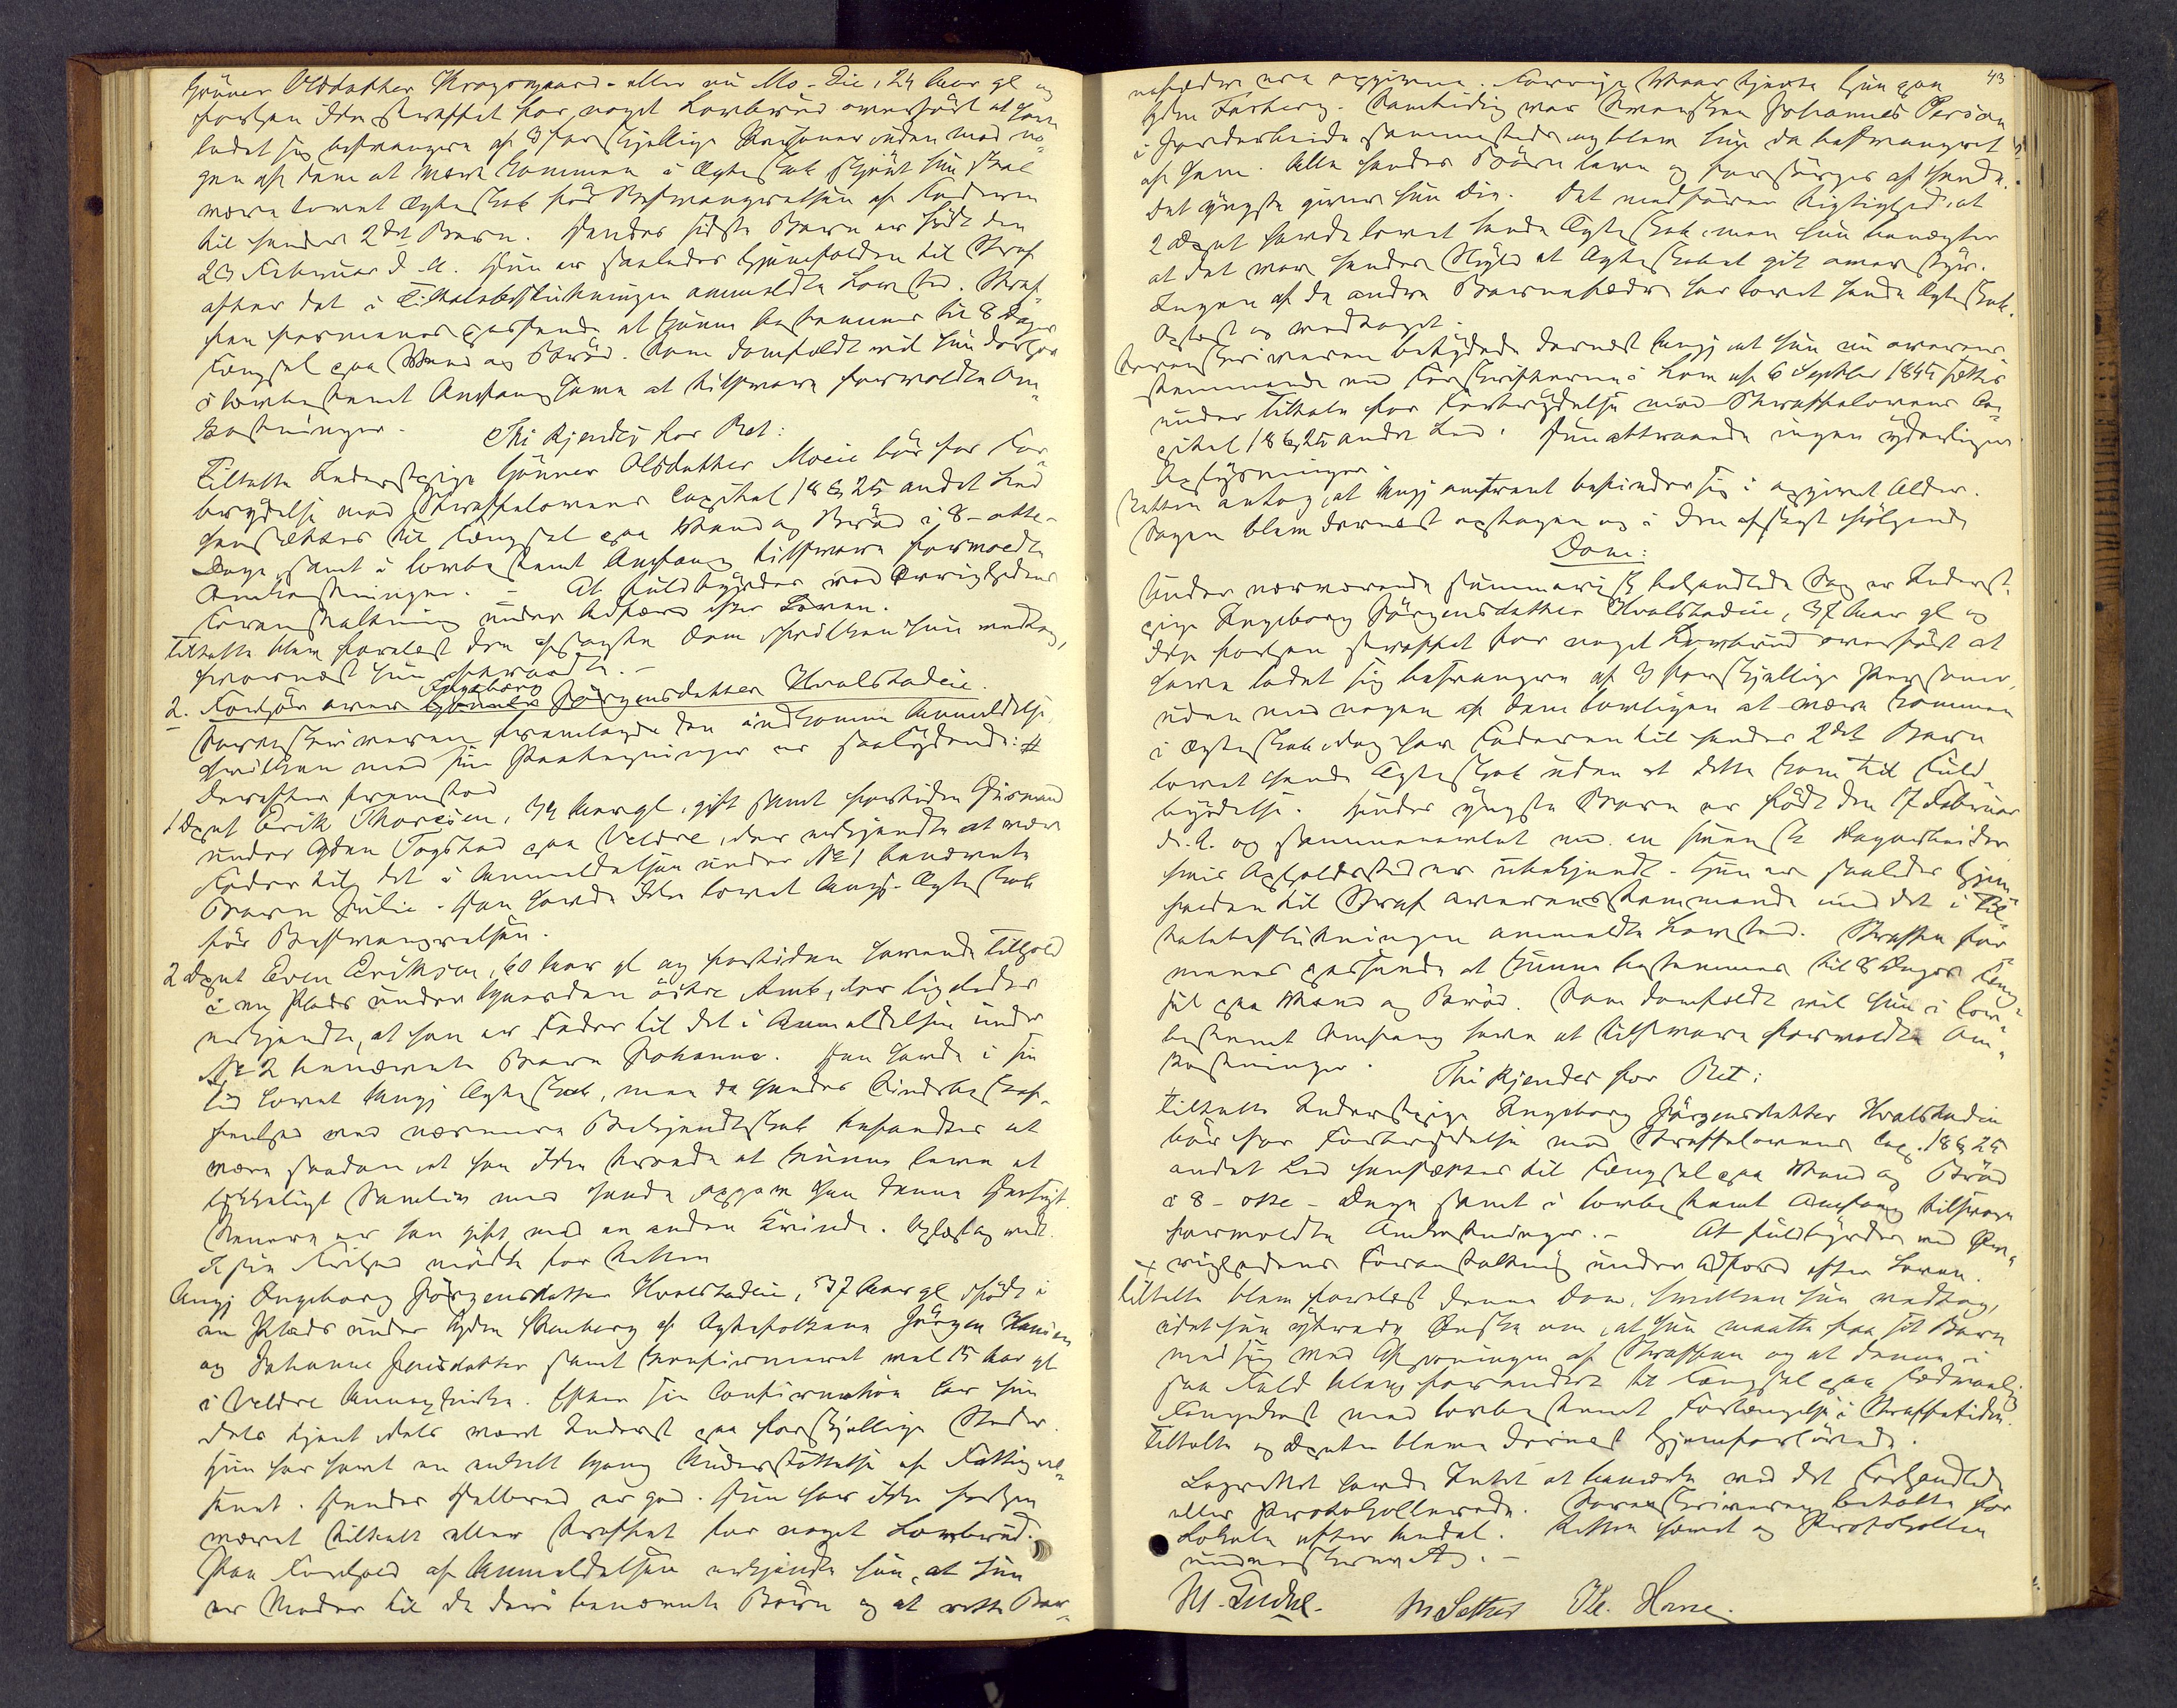 Gunner Olsdatter Kragsgaard- eller nu Mo-Eie, 24 Aar gl og
forhen ikke straffet for noget Lovbrud overført at have
ladet sig besvangre af 3 forskjellige Personer uden med no-
gen af dem at være kommen i Ægteskab skjønt hun skal
være lovet Ægteskab før Besvangrelsen af Faderen
til hendes 2det Barn. Hendes sidste Barn er født den
23 Februar d. A. Hun er saaledes hjemfalden til Straf
efter det i Tiltalebeslutningen anmeldte Lovsted. Straf-
fen formenes passende at kunne bestemmes til 8 Dages
Fængsel paa Vand og Brød. Som domfældt vil hun derhos
i lovbestemt Omfang have at tilsvare forvoldte Om-
kostninger.
Thi kjendes for Ret:
Tiltalte Inderstpige Gunner Olsdatter Moeie bør for For-
brydelse mod Straffelovens Capitel 18 § 25 andet Led
hensættes til Fængsel paa Vand og Brød i 8 - otte -
Dage, samt i lovbestemt Omfang tilsvare forvoldte
Omkostninger. - At fuldbyrdes ved Øvrighedens
Foranstaltning under Adfærd efter Loven.
Tiltalte blev forelæst den afsagte Dom hvilken hun vedtog,
hvornæst hun fratraadte. -
2. Forhør over Ingeborg Jörgensdatter Hvalstadeie.
Sorenskriveren fremlagde den indkomne Anmeldelse
hvilken med sin Paategninger er saalydende: #
Derefter fremstod
1 Dept Erik Thoresen, 34 Aar gl, gift samt fortiden Husmand
under Gden Togstad paa Veldre, der erkjendte at være
Fader til det i Anmeldelsen under No 1 benævnte
Barn Julie. Han havde ikke lovet Angj. Ægteskab
før Besvangrelsen.
2 Dept Even Eriksen, 60 Aar gl og fortiden havende Tilhold
i en Plads under Gaarden østre Amb, der ligeledes
erkjendte, at han er Fader til det i Anmeldelsen under
No 2 benævnte Barn Johanne. Han havde i sin
Tid lovet Angj Ægteskab, men da hendes Sindsbeskaf-
fenhed ved nærmere Bekjendtskab befandtes at
være saadan at han ikke troede at kunne leve et
lykkeligt Samliv med hende opgav han denne Hensigt.
Senere er han gift med en anden Kvinde. Oplæst og vedt.
I sin Frihed mødte for Retten
Angj Ingeborg Jörgensdatter Hvalstadeie, 37 Aar gl, født i
en Plads under Gden Stenberg af Ægtefolkene Jörgen Hansen
og Johanne Jensdatter samt konfirmeret ved 15 Aar gl
i Veldre Annexkirke. Efter sin Confirmation har hun
dels tjent dels været Inderst paa forskjellige Steder.
Hun har havt en enkelt Gang Understøttelse af Fattigvæ-
senet. Hendes Helbred er god. Hun har ikke forhen
været tiltalt eller straffet for noget Lovbrud.
Paa Forehold af Anmeldelsen erkjendte hun, at hun
er Moder til de deri benævnte Børn og at rette Bar-
43
nefædre ere opgivne. Forrige Vaar tjente hun paa
Gden Farberg. Samtidig var Svensken Johannes Person
i Jordarbeide sammesteds og blev hun da besvangret
af ham. Alle hendes Børn leve og forsørges af hende.
Det yngste giver hun Die. Det medfører Rigtighed, at
2 Dept havde lovet hende Ægteskab, men hun benægter
at det var hendes Skyld at Ægteskabet gik overstyr.
Ingen af de andre Barnefædre har lovet hende Ægteskab.
Oplæst og vedtaget.
Sorenskriveren betydede dernæst Angj at hun nu overens-
stemmende med Forskrifterne i Lov af 6 Septbr 1845 sættes
under Tiltale for Forbrydelse mod Straffelovens Ca-
pitel 18 § 25 andet Led. Hun attraaede ingen yderligere
Oplysninger.
Retten antog, at Angj omtrent befinder sig i opgivet Alder.
Sagen blev dernæst optagen og i den afsagt følgende
Dom:
Under nærværende summarisk behandlede Sag er Inderst-
pige Ingeborg Jörgensdatter Hvalstadeie, 37 Aar gl og
ikke forhen straffet for noget Lovbrud overført at
have ladet sig besvangre af 3 forskjellige Personer,
uden med nogen af dem lovligen at være kommen
i Ægteskab, dog har Faderen til hendes 2det Barn
lovet hende Ægteskab uden at dette kom til Fuld-
byrdelse. Hendes yngste Barn er født den 17 Februar
d. A. og sammenavlet med en svensk Dagarbeider
hvis Opholdssted er ubekjendt. Hun er saaledes hjem-
falden til Straf overensstemmende med det i Til-
talebeslutningen anmeldte Lovsted. Straffen for-
menes passende at kunne bestemmes til 8 Dages Fæng-
sel paa Vand og Brød. Som domfældt vil hun i lov-
bestemt Omfang have at tilsvare forvoldte Om-
kostninger.
Thi kjendes for Ret:
Tiltalte Inderstpige Ingeborg Jörgensdatter Hvalstadeie
bør for Forbrydelse mod Straffelovens Cap. 18 § 25
andet Led hensættes til Fængsel paa Vand og Brød
i 8 - otte - Dage samt i lovbestemt Omfang tilsvare
forvoldte Omkostninger. - At fuldbyrdes ved Øv-
righedens Foranstaltning under Adfærd efter Loven.
Tiltalte blev forelæst denne Dom, hvilken hun vedtog,
idet hun ytrede Ønske om, at hun maatte faa sit Barn
med sig ved Afsoningen af Straffen og at denne i
saa Fald blev forandret til Fængsel paa sædvanlig
Fangekost med lovbestemt Forlængelse i Straffetiden.
Tiltalte og Depter bleve dernæst hjemforløvede.
Lagrettet havde Intet at bemærke ved det Forhandlede
eller Protokollerede. Sorenskriveren betalte for
Lokale efter Aftal. Retten hævet og Protokollen
underskrevet. -
M. Sether